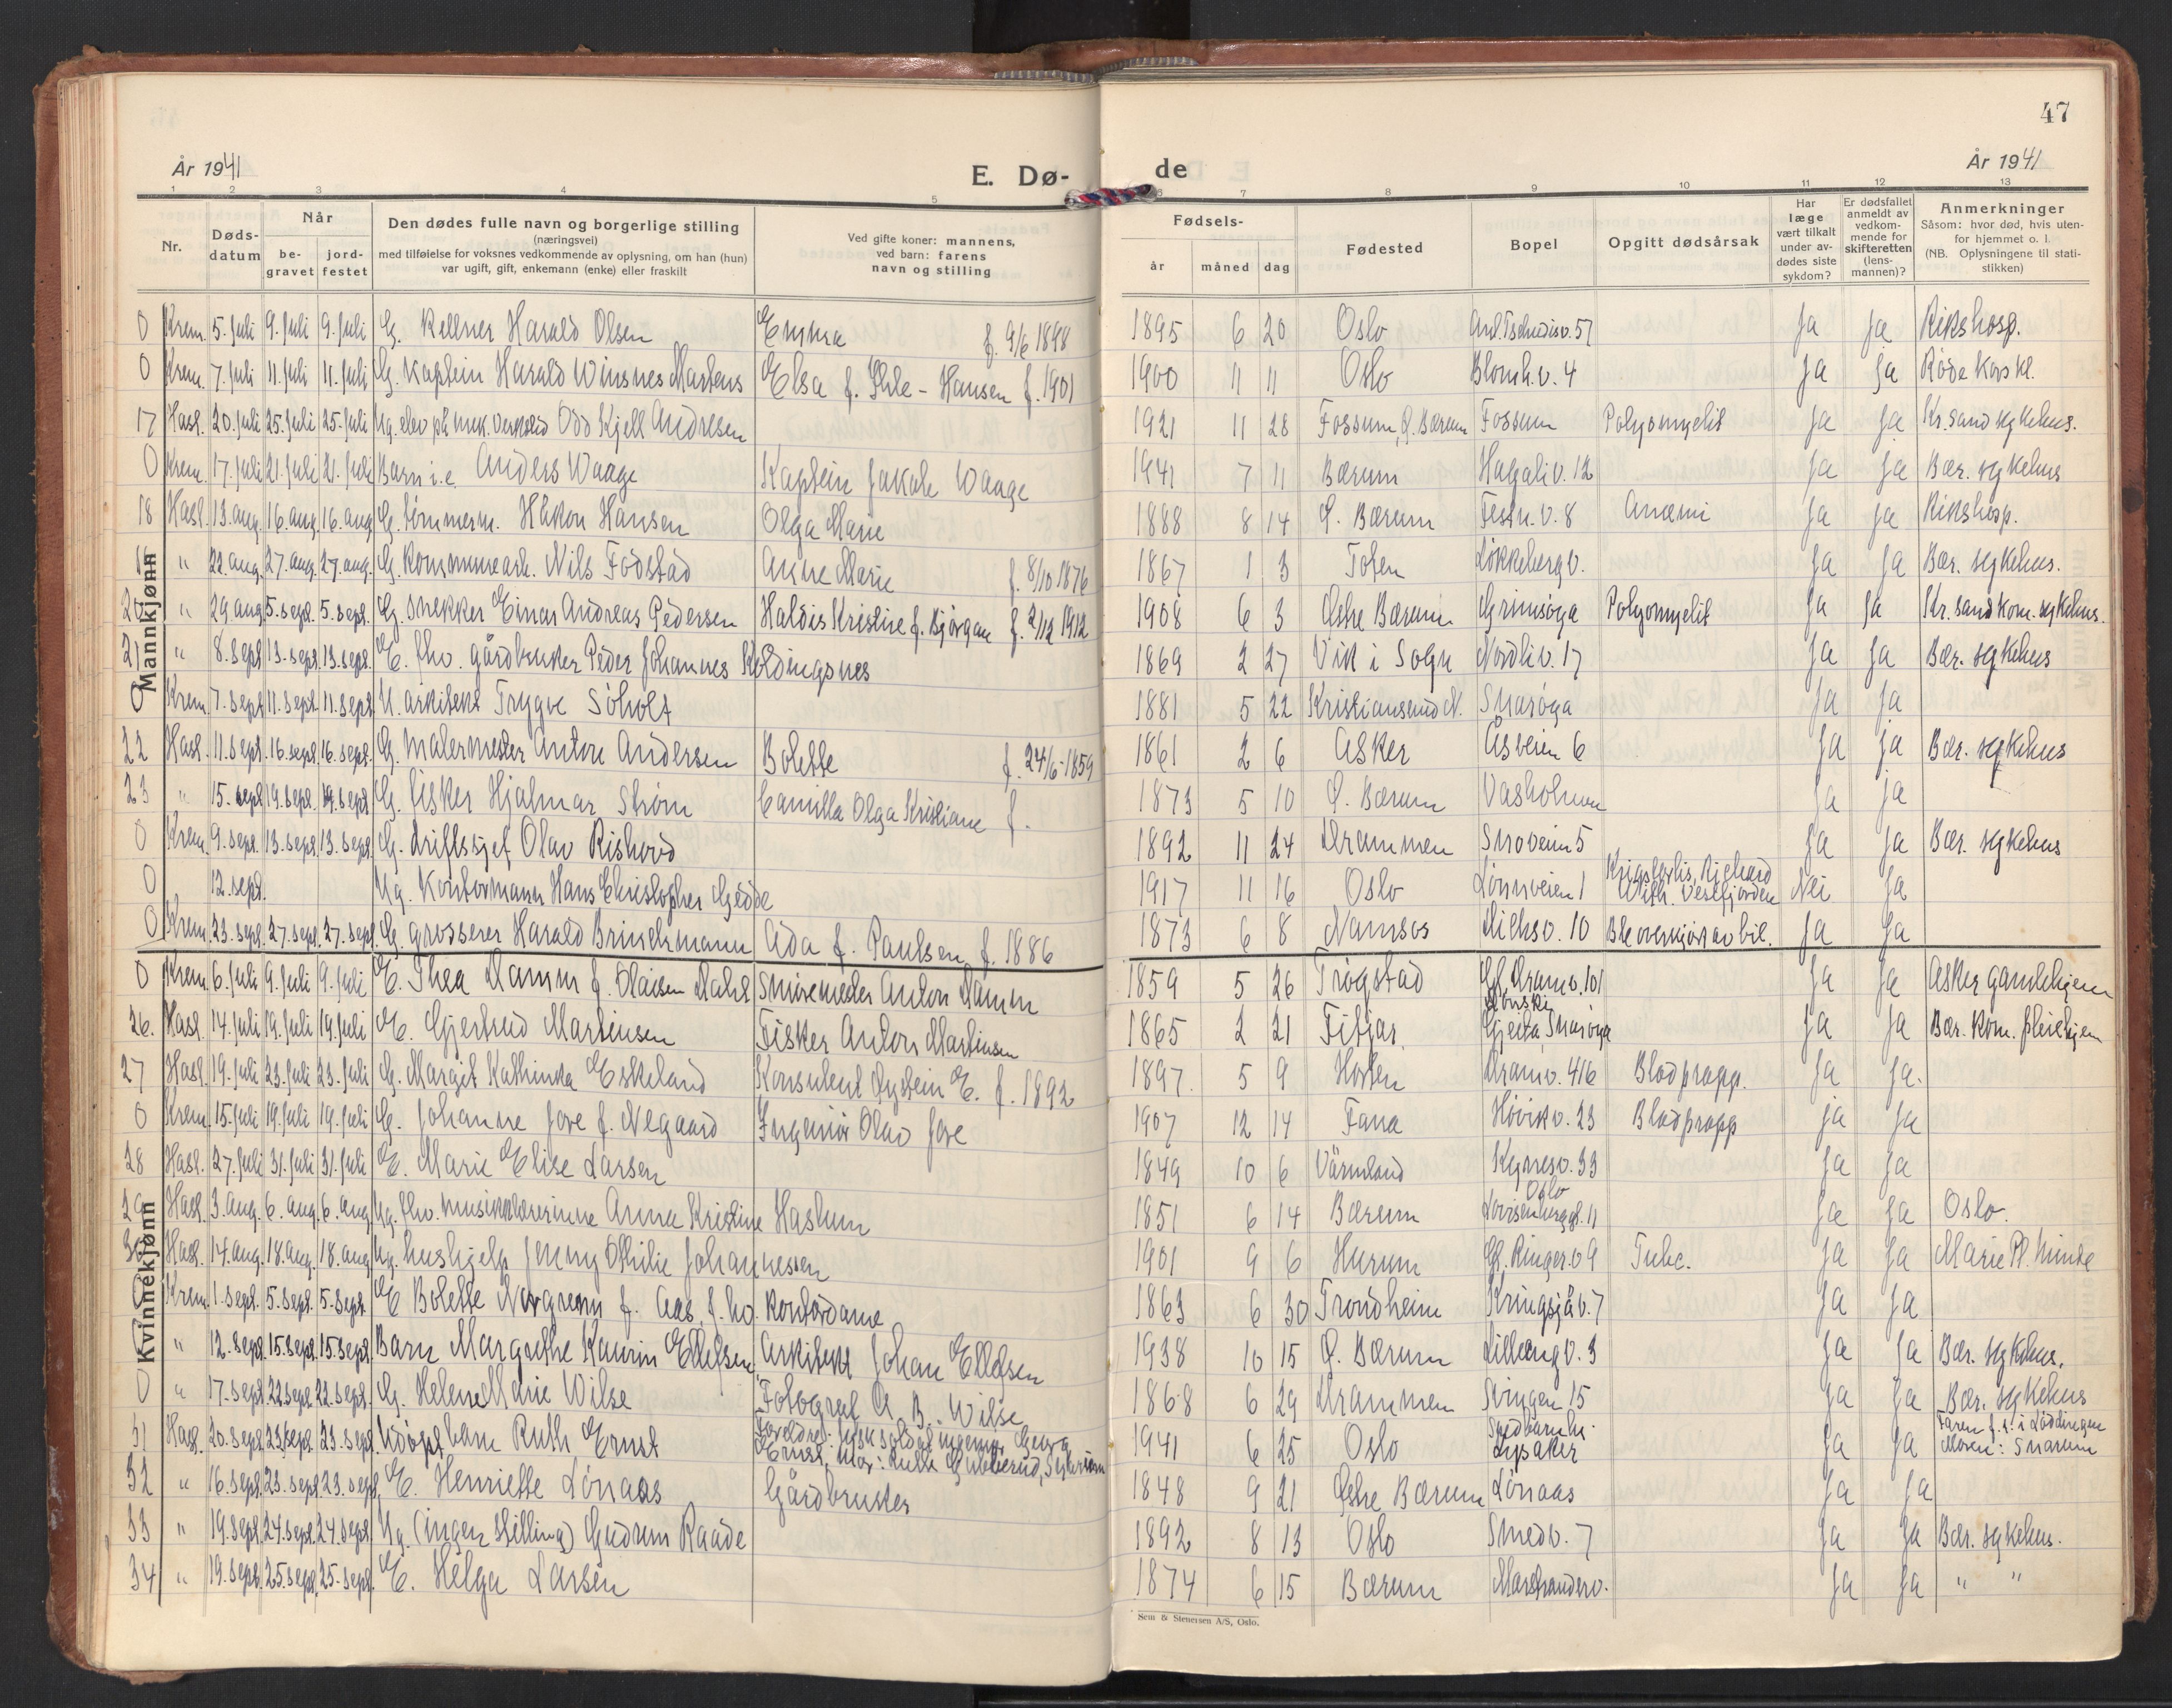 47
År 1941
E. Dø-
de
År 1941
1 2 3 4 5 6 7 8 9 10 11 12 13
Nr.
Døds-
datum
Når
be-
gravet
jord-
festet
Den dødes fulle navn og borgerlige stilling
(næringsvei)
med tilføielse for voksnes vedkommende av oplysning, om han (hun)
var ugift, gift, enkemann (enke) eller fraskilt
Ved gifte koner: mannens,
ved barn: farens
navn og stilling
Fødsels-
år måned dag
Fødested
Bopel
Opgitt dødsårsak
Har
læge
vært tilkalt
under av-
dødes siste
sykdom?
Er dødsfallet
anmeldt av
vedkom-
mende for
skifteretten
(lens-
mannen)?
Anmerkninger
Såsom: hvor død, hvis uten-
for hjemmet o. l.
(NB. Oplysningene til stati-
stikken)
Mannkjønn
0 Krem. 5. juli 9. juli 9. juli G. Kellner Harald Olsen Emma f. 9/6 1898 1895 6 20 Oslo Ant. Tschudisv. 51 Ja Ja Rikshosp.
0 Krem. 7. juli 11. juli 11. juli G. Kaptein Harald Winsnes Martens Elsa f. Ihle-Hansen f. 1901 1900 11 11 Oslo Blomh.v. 4 Ja Ja Røde Kors kl.
17 Hasl. 20. juli 25. juli 25. juli Ug. elev på mek. verksted Odd Kjell Andresen 1921 11 28 Fossum, Ø. Bærum Fossum Polyomyelit Ja Ja Kr. sand sykehus.
0 Krem. 17. juli 21. juli 21. juli Barn i.e. Anders Waage Kaptein Jakob Waage 1941 7 11 Bærum Hagaliv. 12 Ja Ja Bær. sykehus
18 Hasl. 13. aug. 16. aug. 16. aug. G. tømmerm. Håkon Hansen Olga Marie 1888 8 14 Ø. Bærum Festn.v. 8 Anæmi Ja Ja Rikshosp.
" 22. aug. 27. aug. 27. aug. G. kommunearb. Nils Fodstad Anne Marie f. 8/10 1876 1867 1 3 Toten Løkkebergv. Ja Ja Bær. sykehus.
20 " 29 aug. 5. sept. 5. sept. G. snekker Einar Andreas Pedersen Haldis Kristine f. Bjørgan f. 2/12 1912 1908 6 3 Østre Bærum Grimsøya Polyomyelit Ja Ja Kr. sand kom. sykehus.
21 " 8. sept. 13. sept. 13. sept. E. fhv. gårdbruker Peder Johannes Holdingsnes 1869 2 27 Vik i Sogn Nordliv. 17 Ja Ja Bær. sykehus
0 Krem. 7. sept. 11. sept. 11. sept. U. arkitekt Trygve Søholt 1881 5 22 Kristiansund N. Snarøya Ja Ja
22 Hasl. 11. sept. 16. sept. 16. sept. G. malermester Anton Andersen Bolette f. 24/6-1859 1861 2 6 Asker Åsveien 6 Ja Ja Bær. sykehus
23 " 15. sept. 19. sept. 19. sept. G. fisker Hjalmar Strøm Camilla Olga Kristiane f. 1873 5 10 Ø. Bærum Vasholmen Ja Ja
0 Krem. 9. sept. 13. sept. 13. sept. G. driftssjef Olav Rishovd 1892 11 24 Drammen Snoveien 5 Ja Ja Bær. sykehus
0 12. sept. Ug. Kontormann Hans Christopher Gedde 1917 11 16 Oslo Lønnveien 1 Krigsforlis, Richard With. Vestfjorden Nei Ja
0 Krem. 23. sept. 27. sept. 27. sept. G. grosserer Harald Brinchmann Ada f. Paulsen f. 1886 1873 6 8 Namsos 10 Ble overkjørt av bil. Ja Ja
Kvinnekjønn
0 Krem. 6. juli 9. juli 9. juli E. Thea Damm f. Olaisen Dahl Smøremester Anton Damm 1859 5 26 Trøgstad Gl. Dramv. 101 Ja Ja Asker gamlehjem
26. Hasl. 14. juli 19. juli 19. juli E. Gjertrud Martinsen Fisker Anton Martinsen 1865 2 21 Fitjar Snarøya Ja Ja Bær. Kom. pleiehjem
27 Hasl. 19. juli 23. juli 23. juli G. Margit Kathinka Eskeland Konsulent Øystein E. f. 1892 1897. 5 9 Horten Dramv. 416 Blodpropp. Ja Ja.
0 Krem. 15. juli 19. juli 19. juli G. Johanne Jore f. Negaard Ingeniør Olav Jore 1907 12 14 Fana Høvikv. 23 Blodpropp ja Ja
28 Hasl. 27. juli 31. juli 31. juli E. Marie Elise Larsen 1849 10 6 Värmland 33 Ja Ja
29 Hasl. 3. aug. 6. aug. 6. aug. Ug. fhv. musiklærerinne Anna Kristine Haslum 1851 6 14 Bærum Oslo Lovisenberggt. 11 Ja Ja Oslo.
30 Hasl. 14. aug. 18. aug. 18. aug. Ug. hushjelp Jenny Othilie Johannessen 1901 9 6 Hurum Gl. Ringer.v 9 Tube. Ja Ja Marie Pl. Minde
Krem. 1. sept. 5. sept. 5. sept. E Bolette Norgrenn f. Aas, f.hv. kontordame 1863 6 30 Trondheim Kringsjåv. 7 Ja Ja
" 12. sept. 15. sept. 15. sept. Barn Margrethe Kaurin Ellefsen Arkitekt Johan Ellefsen 1938 10 15 Ø. Bærum Lillengv. 3 Ja Ja Bær. sykehus.
0 " 17. sept. 22 sept. 22. sept. G. Helene Marie Wilse Fotograf A. B. Wilse 1868 6 29 Drammen Svingen 15 Ja Ja Bær. sykehus
31 Hasl. 20. sept. 23 sept. 23. sept. Udøpt barn Ruth Ernst Foreldre: tysk soldat ingeniør Georg Ernst, Mor: Ruth Gubberud, 1941 6 25 Oslo Spedbarnhj. Lysaker Ja Ja Faren f. s. i Lødingen Moren: Snarum
32 " 16. sept. 23. sept. 23. sept. E. Henriette Lönaas Gårdbruker 1848 9 21 Østre Bærum Lönaas Ja Ja
33 " 19. sept. 24. sept. 24. sept. Ug. (ingen stilling) Gudrun Raade 1892 8 13 Oslo Smedv. 7 Ja Ja Bær. sykehus.
34 " 19. sept. 25. sept. 25. sept. E. Helga Larsen 1874 6 15 Bærum Marstranderv. Ja Ja " "
Sem & Stenersen A/S, Oslo.